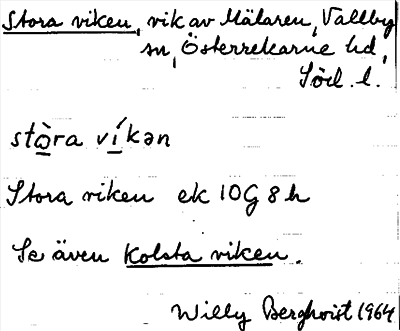 Stora viken, vik av Mälaren, Vallby
sn, Österrekarne hd,
Söd. l.
stò̲ra ví̲kən
Stora viken ek 10G 8h
Se även Kolsta viken.
Willy Bergqvist 1964